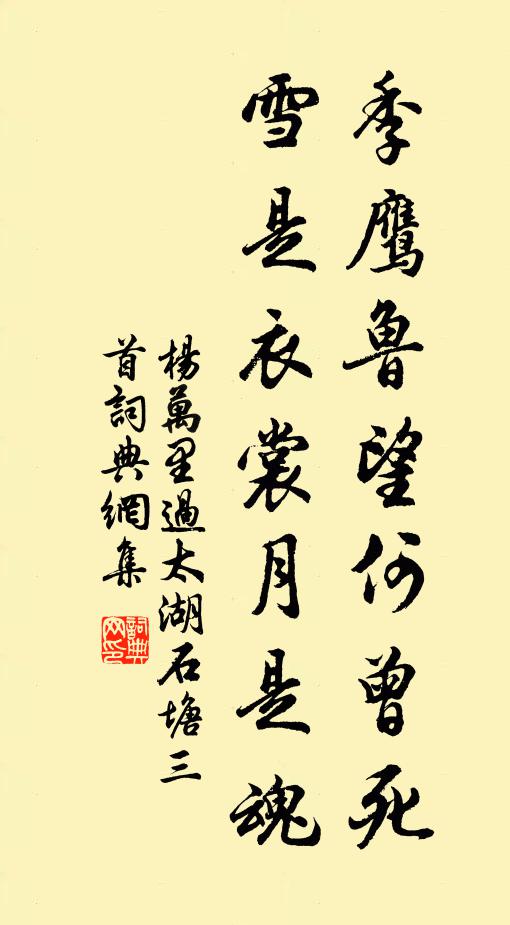 季鷹魯望何曾死
雪是衣裳月是魂
楊萬里過太湖石塘三
首詞典網集
詞典
网印